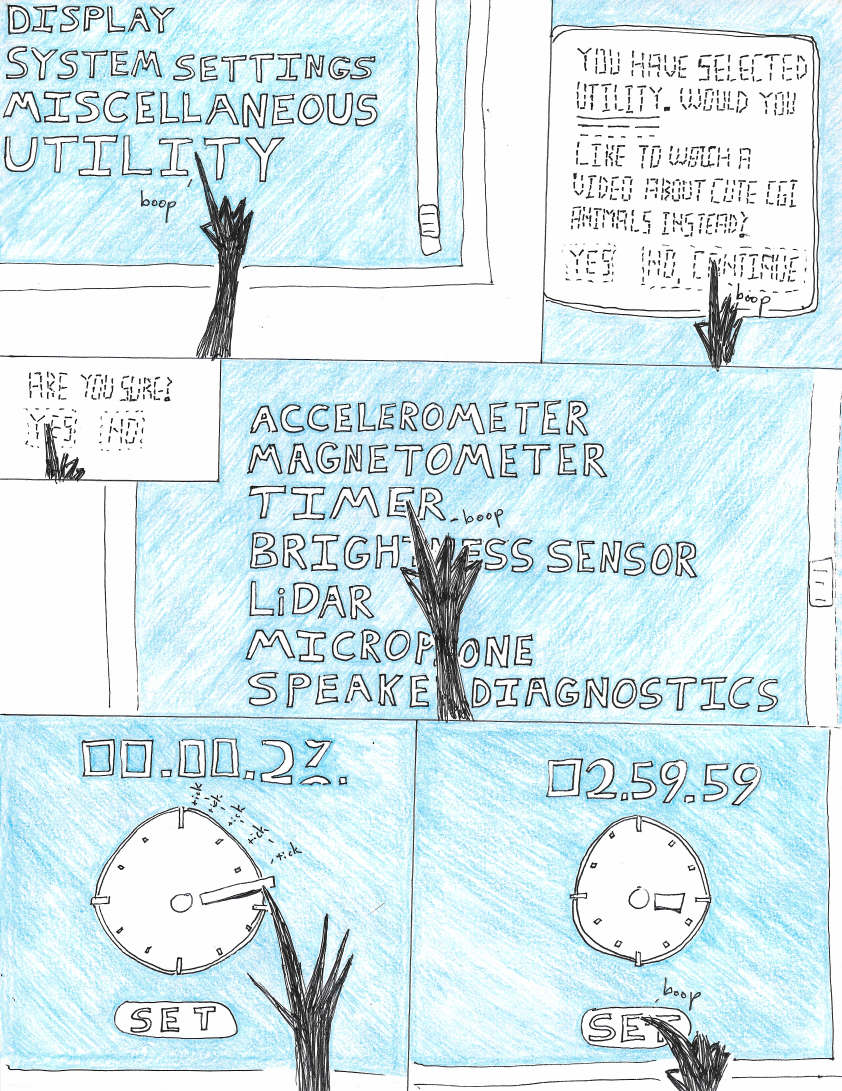 DISPLAY
SYSTEM SETTINGS
MISCELLANEOUS
UTILITY
boop
YOU HAVE SELECTED
UTILITY. WOULD YOU
LIKE TO WATCH A
VIDEO ABOUT CUTE CGI
ANIMALS INSTEAD?
YES NO, CONTINUE
boop
ARE YOU SURE?
YES NO
ACCELEROMETER
MAGNETOMETER
TIMER
boop
BRIGHTNESS SENSOR
LiDAR
MICROPHONE
SPEAKER DIAGNOSTICS
tick
tick
tick
tick
tick
SET
02.59.59
boop
SET